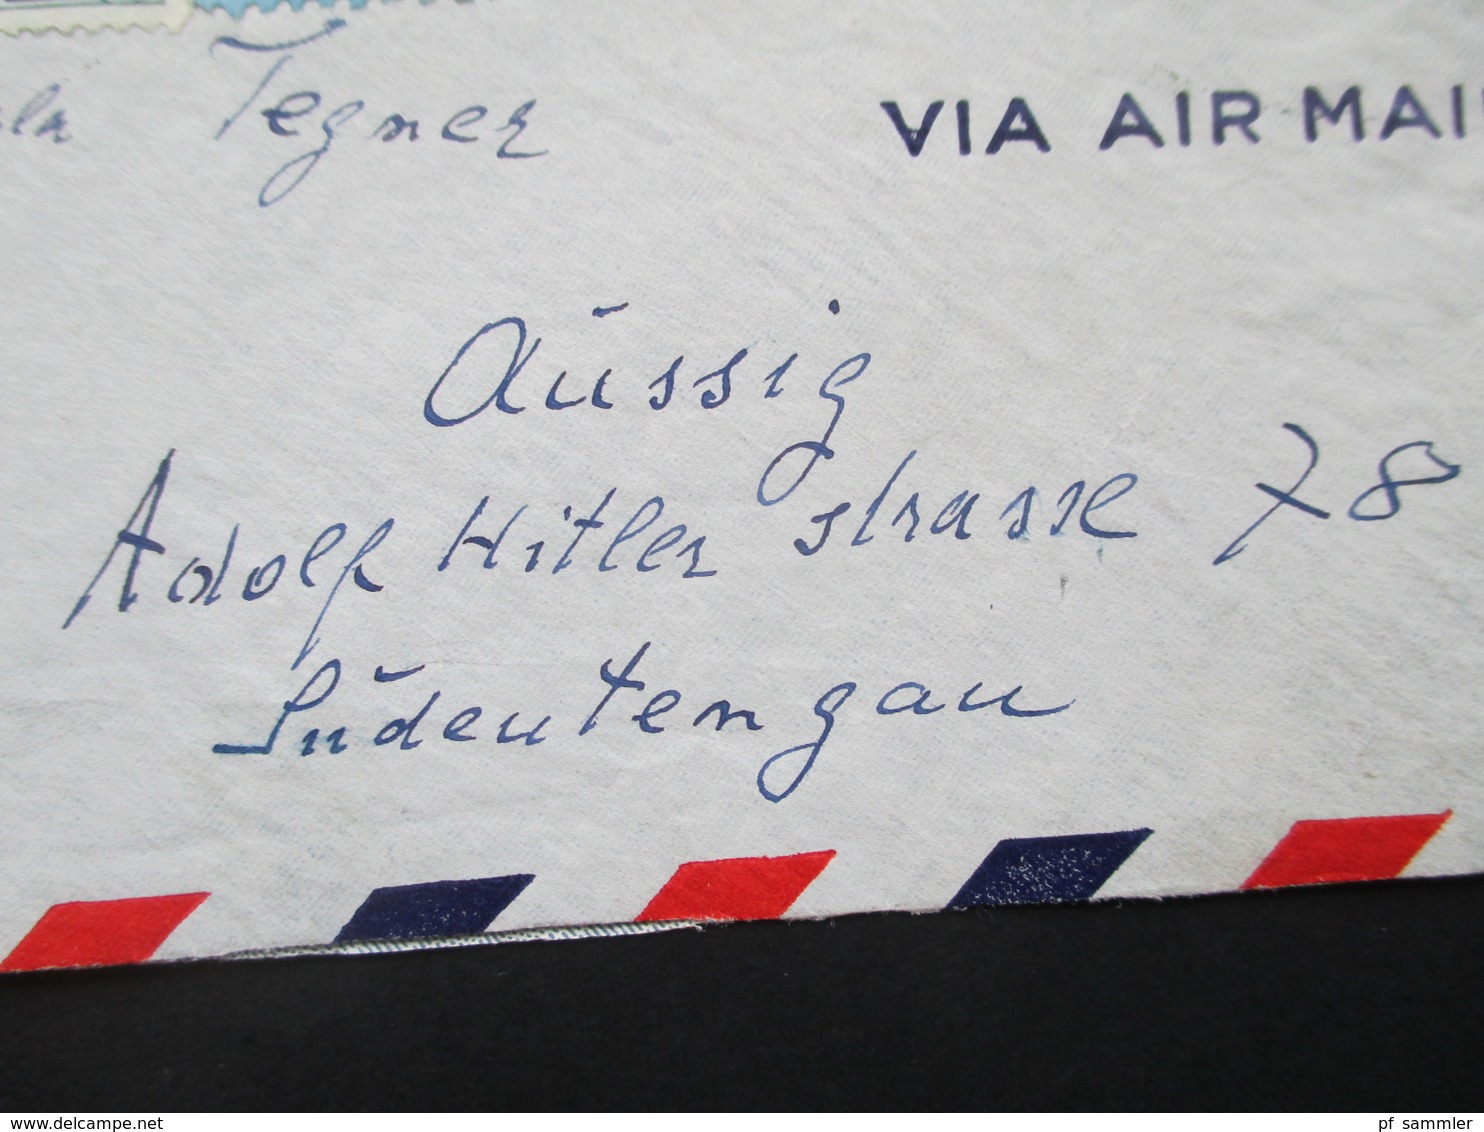 Tegner
VIA AIR MAI
Aussig
Adolf Hitler strasse 78
Sudetengau
delcampe.net
pf_sammler